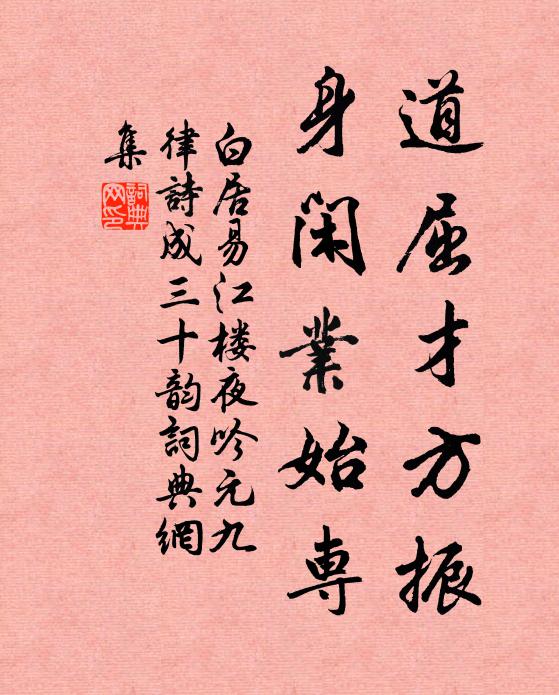 道屈才方振
身閑業始專
白居易江楼夜吟元九
律詩成三十韵詞典網
集
詞典
网印